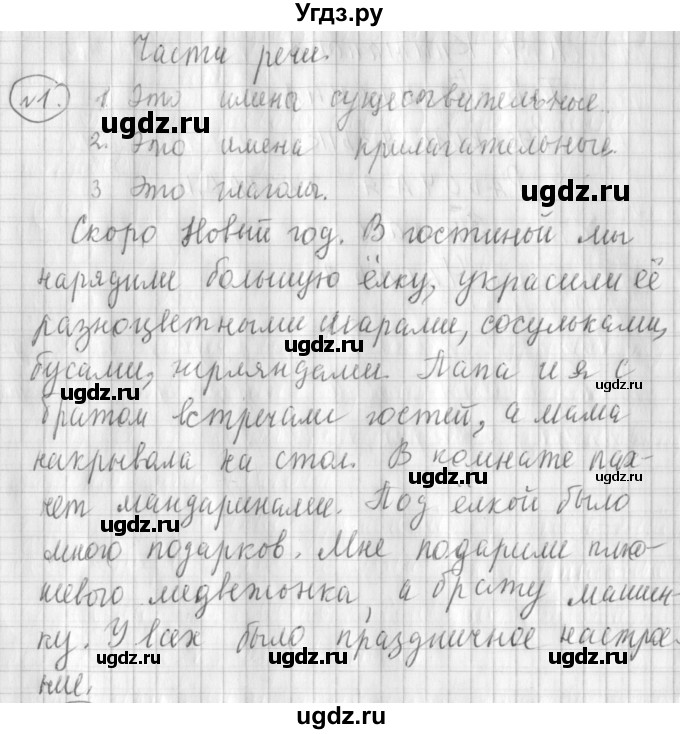 Угдз.ру
Части речи.
№1. 1 Это имена существительные.
ugdz.ru
2. Это имена прилагательные.
3 Это глаголы. ugdz.ru
Скоро Новый год. В гостиной мы
нарядили большую ёлку, украсили её
ugdz.ru
разноцветными шарами, сосульками,
ugdz.ru
бусами, гирляндами. Папа и я с
ugdz.ru ugdz.ru
братом встречали гостей, а мама
накрывала на стол. В комнате пах-
ugdz.ru
нет мандаринами. Под ёлкой было
ugdz.ru
много подарков. Мне подарили плю-
ugdz.ru
шевого медвежонка, а брату машин-
ugdz.ru
ку. У всех было праздничное настрое-
ugdz.ru ugdz.ru
ние.
ugdz.ru